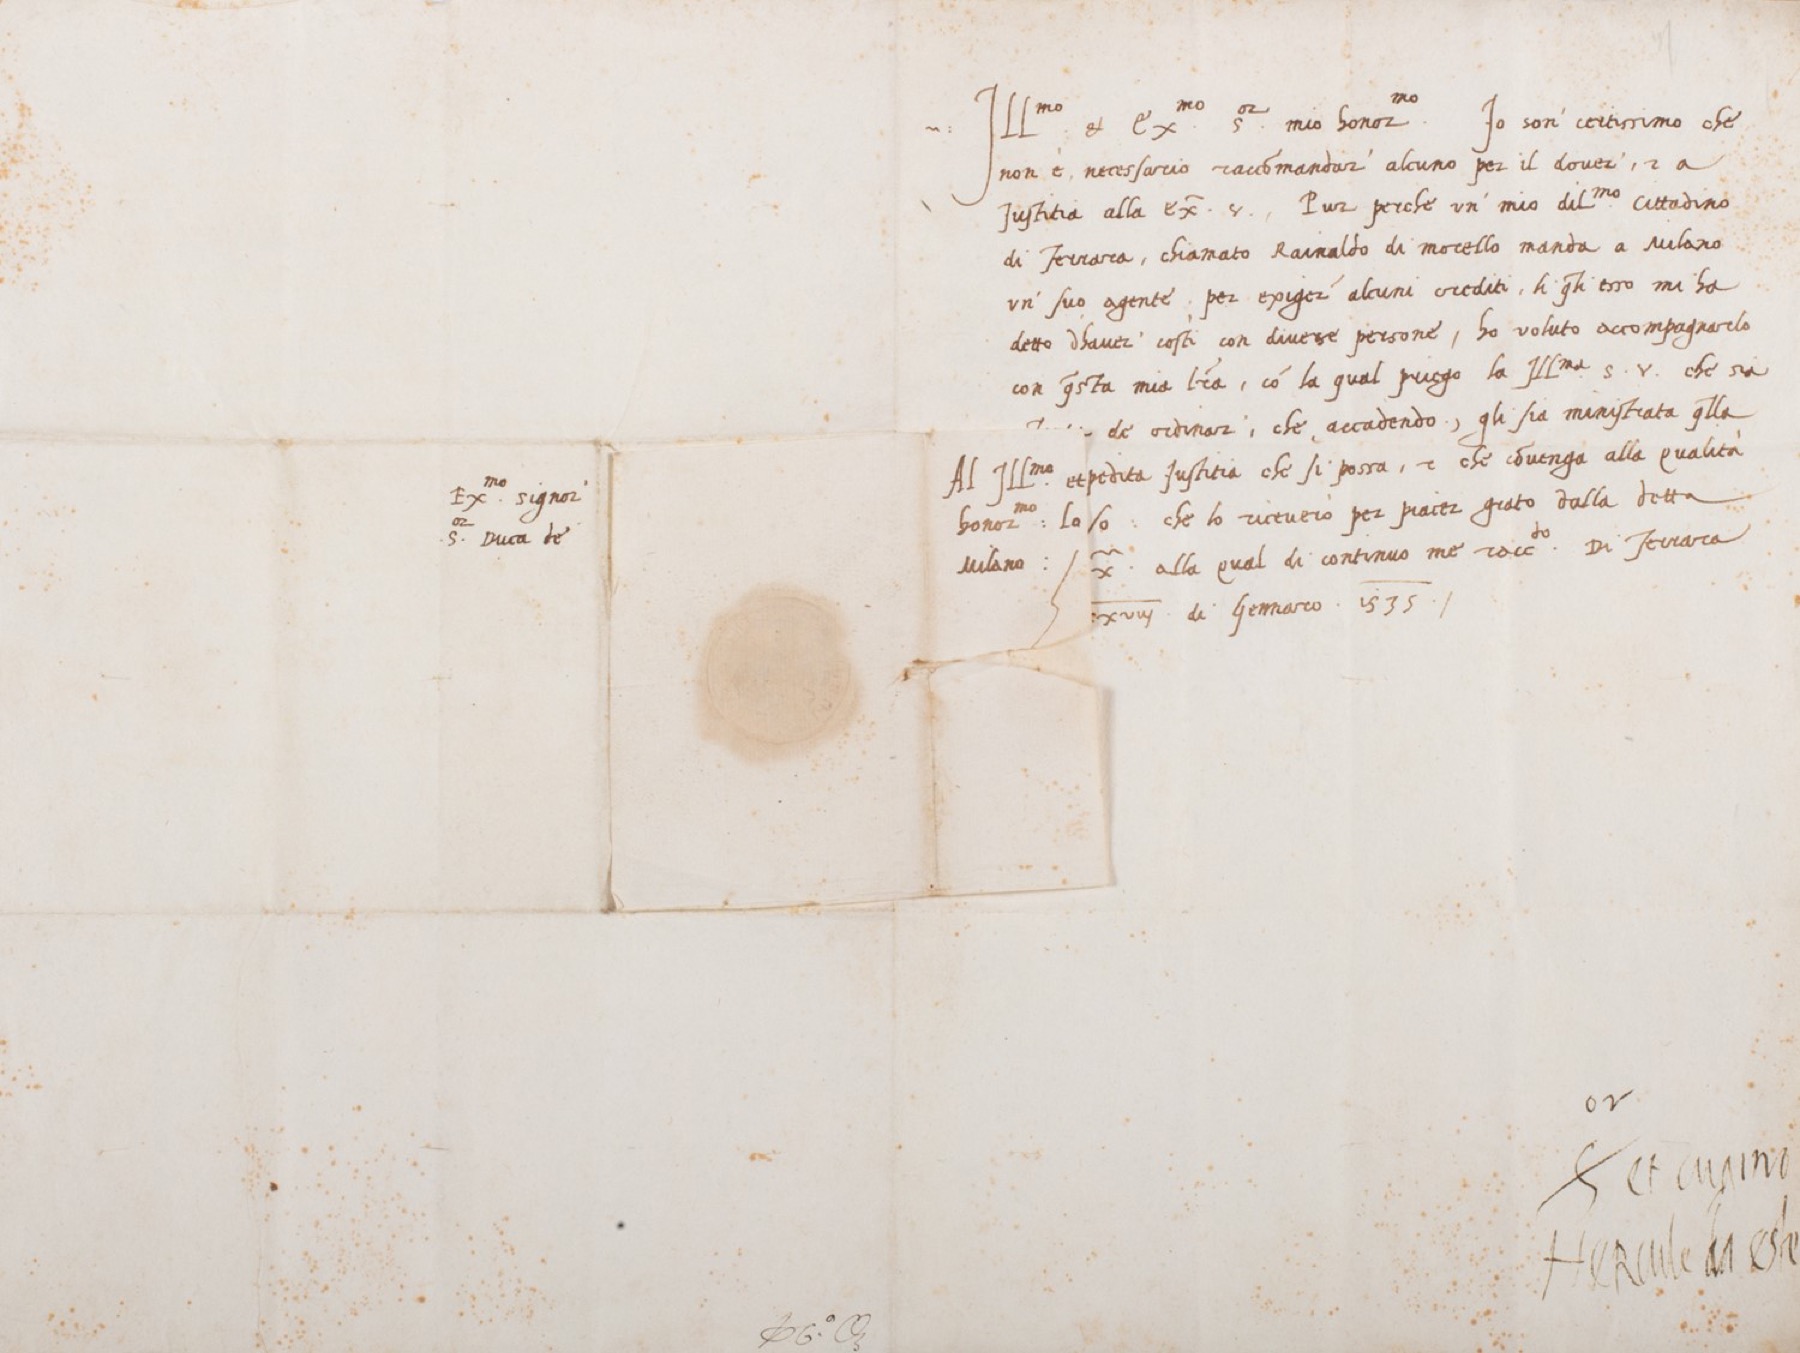 Ill^mo. et Ex^mo. S^or. mio honor^mo. Io son' certissimo che
non è, necessario raccomandar' alcuno per il dover', et a
Justitia alla Ex. V., Pur perche un' mio dil^mo Cittadino
di Ferrara, chiamato Rainaldo di morello manda a Milano
un' suo agente per exiger' alcuni crediti, li qli esso mi ha
detto d'haver' costì con diverse persone, ho voluto accompagnarlo
con qsta mia lra, co la qual priego la Ill^ma S. V. che sia
de ordinar', che, accadendo, gli sia ministrata qlla
expedita Justitia che si possa, et che cōvenga alla qualità
che lo riceverò per piacer grato dalla detta
alla qual di continuo me racc^do. Di Ferrara
di Gennaro. 1535.
Ex^mo. Signor'
S^or. Duca de
Al Ill^mo.
honor^mo:
Milano:
or
S et cugino
Hercule da este